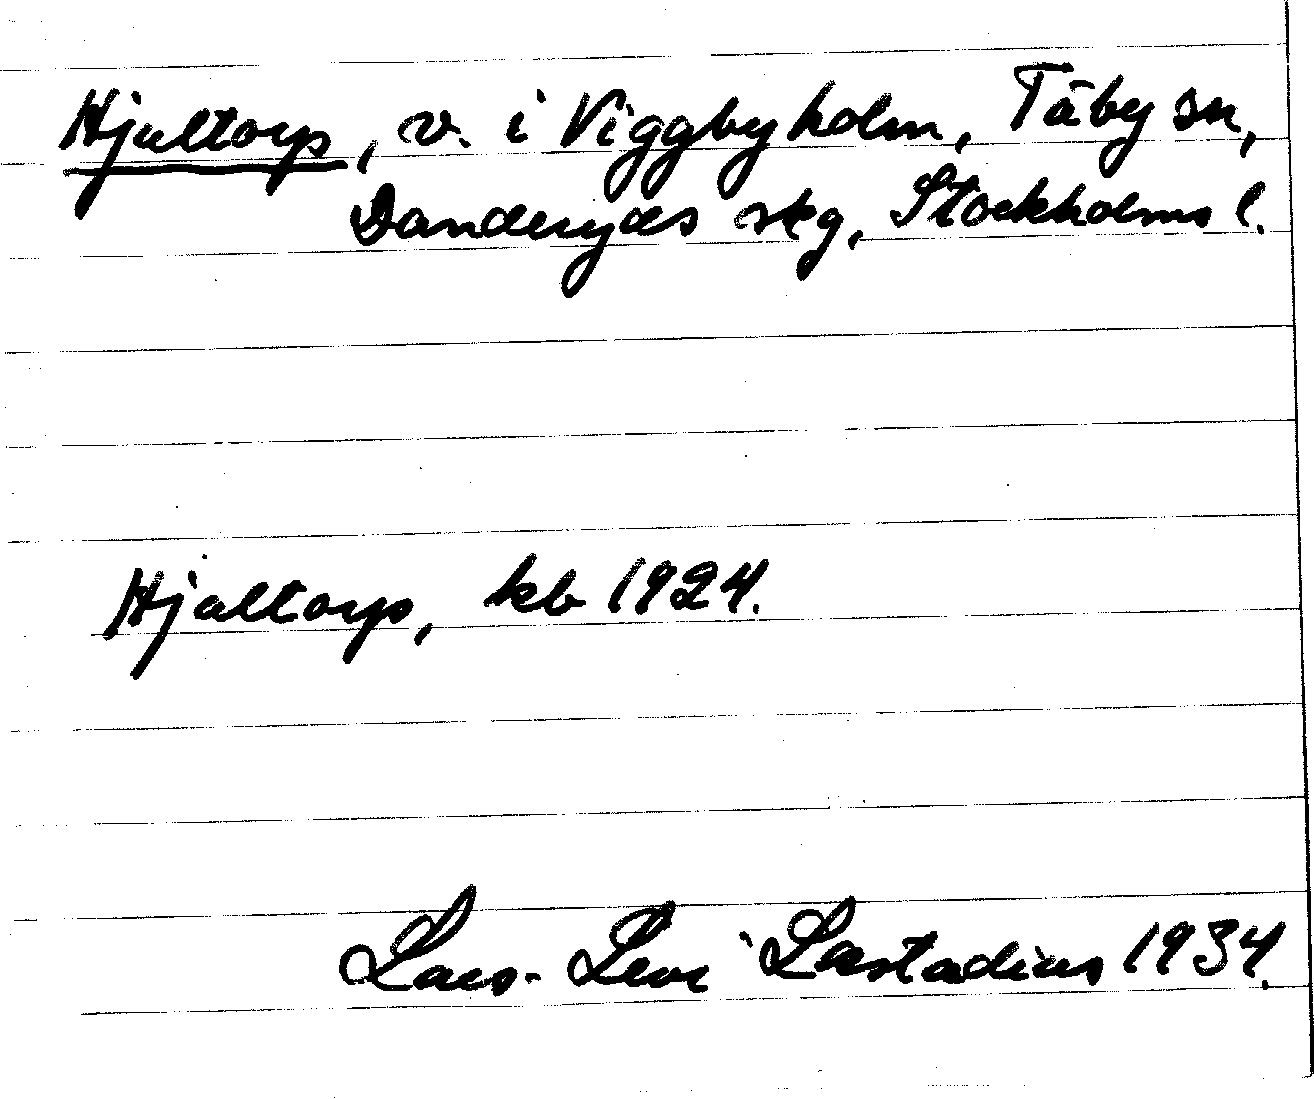 Hjaltorp, v. i Viggbyholm, Täby sn,
Danderyds skg, Stockholms l.
Hjaltorp, kb 1924.
Lars-Levi Læstadius 1934.